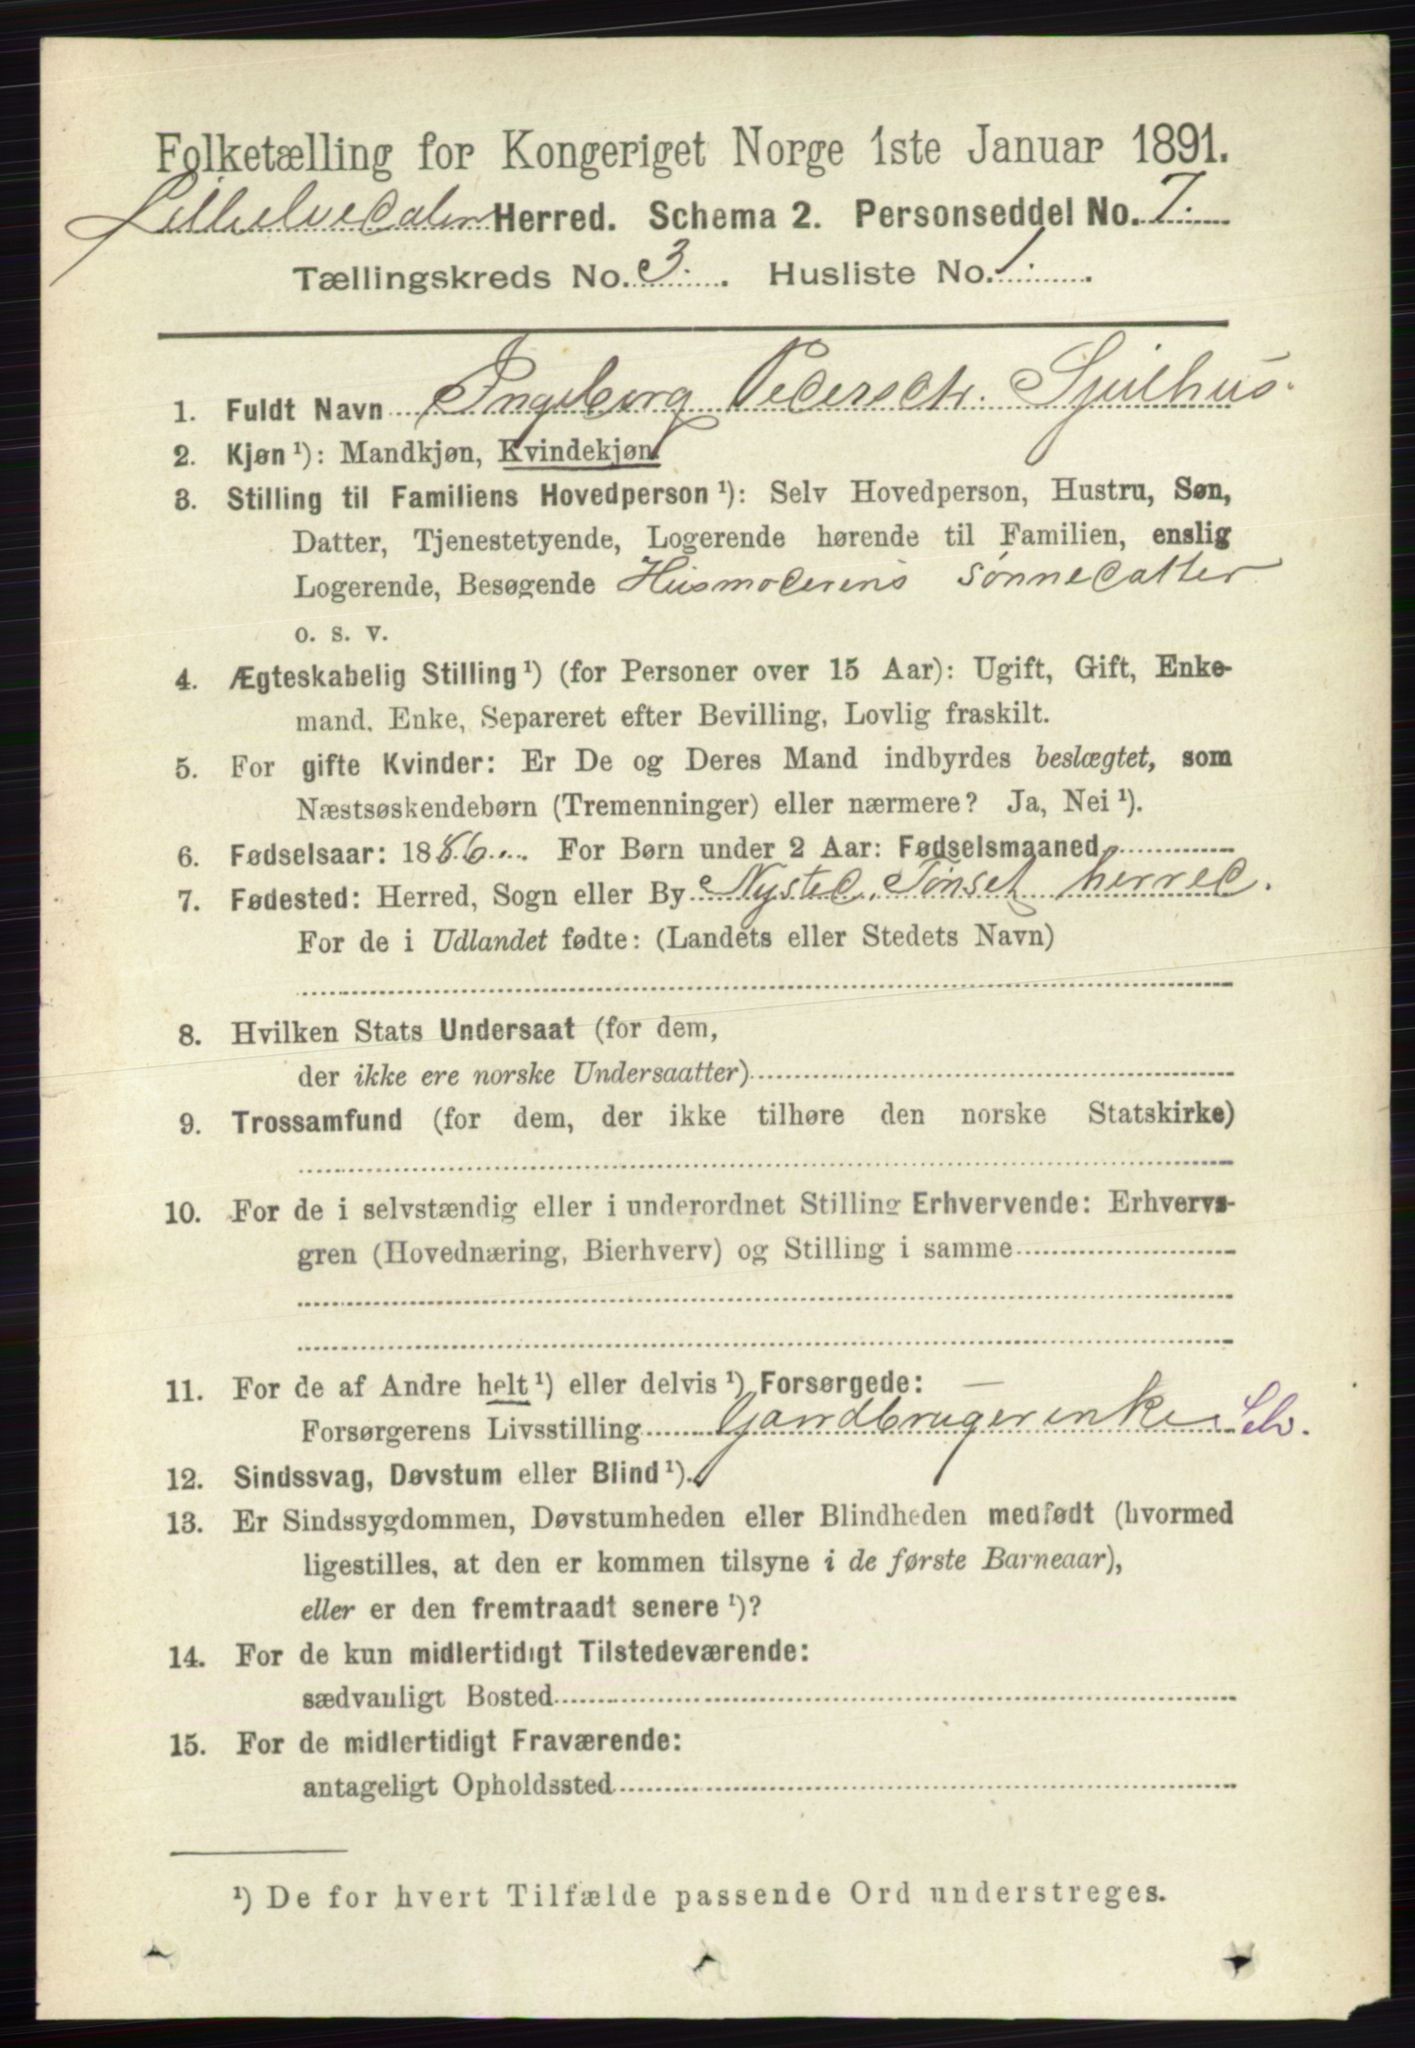 Folketælling for Kongeriget Norge 1ste Januar 1891.
Lilleelvedalen Herred. Schema 2. Personseddel No. 7.
Tællingskreds No. 3. Husliste No. 1.
1. Fuldt Navn Ingeborg Pedersdtr. Sjulhus.
2. Kjøn ¹): Mandkjøn, Kvindekjøn
3. Stilling til Familiens Hovedperson ¹): Selv Hovedperson, Hustru, Søn,
Datter, Tjenestetyende, Logerende hørende til Familien, enslig
Logerende, Besøgende Husmoderens sønnedatter
o. s. v.
4. Ægteskabelig Stilling ¹) (for Personer over 15 Aar): Ugift, Gift, Enke-
mand, Enke, Separeret efter Bevilling, Lovlig fraskilt.
5. For gifte Kvinder: Er De og Deres Mand indbyrdes beslægtet, som
Næstsøskendebørn (Tremenninger) eller nærmere? Ja, Nei ¹).
6. Fødselsaar: 1886. For Børn under 2 Aar: Fødselsmaaned
7. Fødested: Herred, Sogn eller By Nysted, Tønset herred.
For de i Udlandet fødte: (Landets eller Stedets Navn)
8. Hvilken Stats Undersaat (for dem,
der ikke ere norske Undersaatter)
9. Trossamfund (for dem, der ikke tilhøre den norske Statskirke)
10. For de i selvstændig eller i underordnet Stilling Erhvervende: Erhvervs-
gren (Hovednæring, Bierhverv) og Stilling i samme
11. For de af Andre helt ¹) eller delvis ¹) Forsørgede: —
Forsørgerens Livsstilling Gardbrugerenke Selv.
12. Sindssvag, Døvstum eller Blind ¹).
13. Er Sindssygdommen, Døvstumheden eller Blindheden medfødt (hvormed
ligestilles, at den er kommen tilsyne i de første Barneaar),
eller er den fremtraadt senere ¹)?
14. For de kun midlertidigt Tilstedeværende:
sædvanligt Bosted
15. For de midlertidigt Fraværende:
antageligt Opholdssted
¹) De for hvert Tilfælde passende Ord understreges.